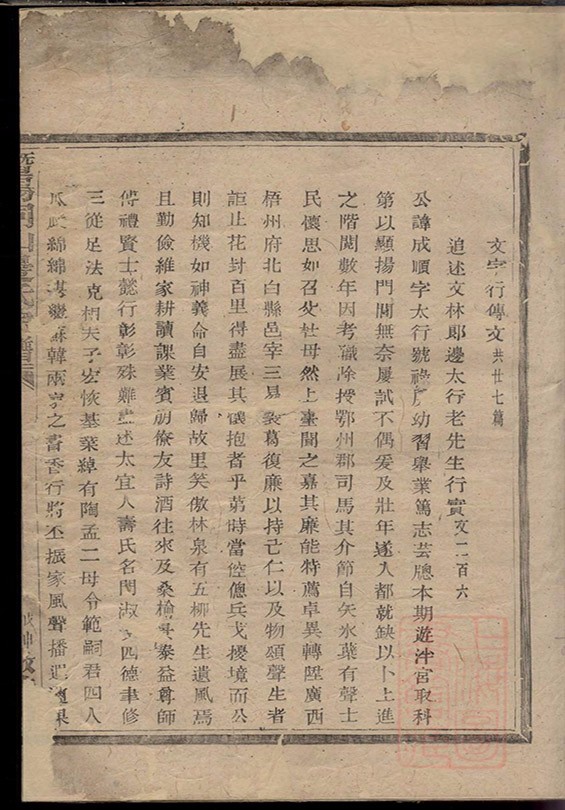 文字行傳文共廿七篇
追述文林郎邊太行老先生行實文二百六
公諱成順字太行號祿 幼習舉業篤志芸牕本期遊泮宮取科
第以顯揚門閭無奈屢試不偶爰及壯年遂入都就缺以卜上進
之階閱數年因考職除授鄂州郡司馬其介節自矢氷蘖有聲士
民懷思如召父杜母然上臺聞之嘉其廉能特薦卓異轉陞廣西
梧州府北白縣邑宰三易裘葛復廉以持己仁以及物頌聲生者
詎止花封百里得盡展其懷抱者乎第時當倥傯兵戈擾境而公
則知機如神義命自安退歸故里笑傲林泉有五柳先生遺風焉
且勤儉維家耕讀課業賓朋僚友詩酒往來及桑榆 泰益尊師
傅禮賢士懿行彰彰殊難 述太宜人壽氏名門淑 四德聿修
三從足法克相夫子宏恢基業綽有陶孟二母令範嗣君四人
瓜瓞綿綿 繼蘇韓兩 之書香行將丕振家風聲播遐 果